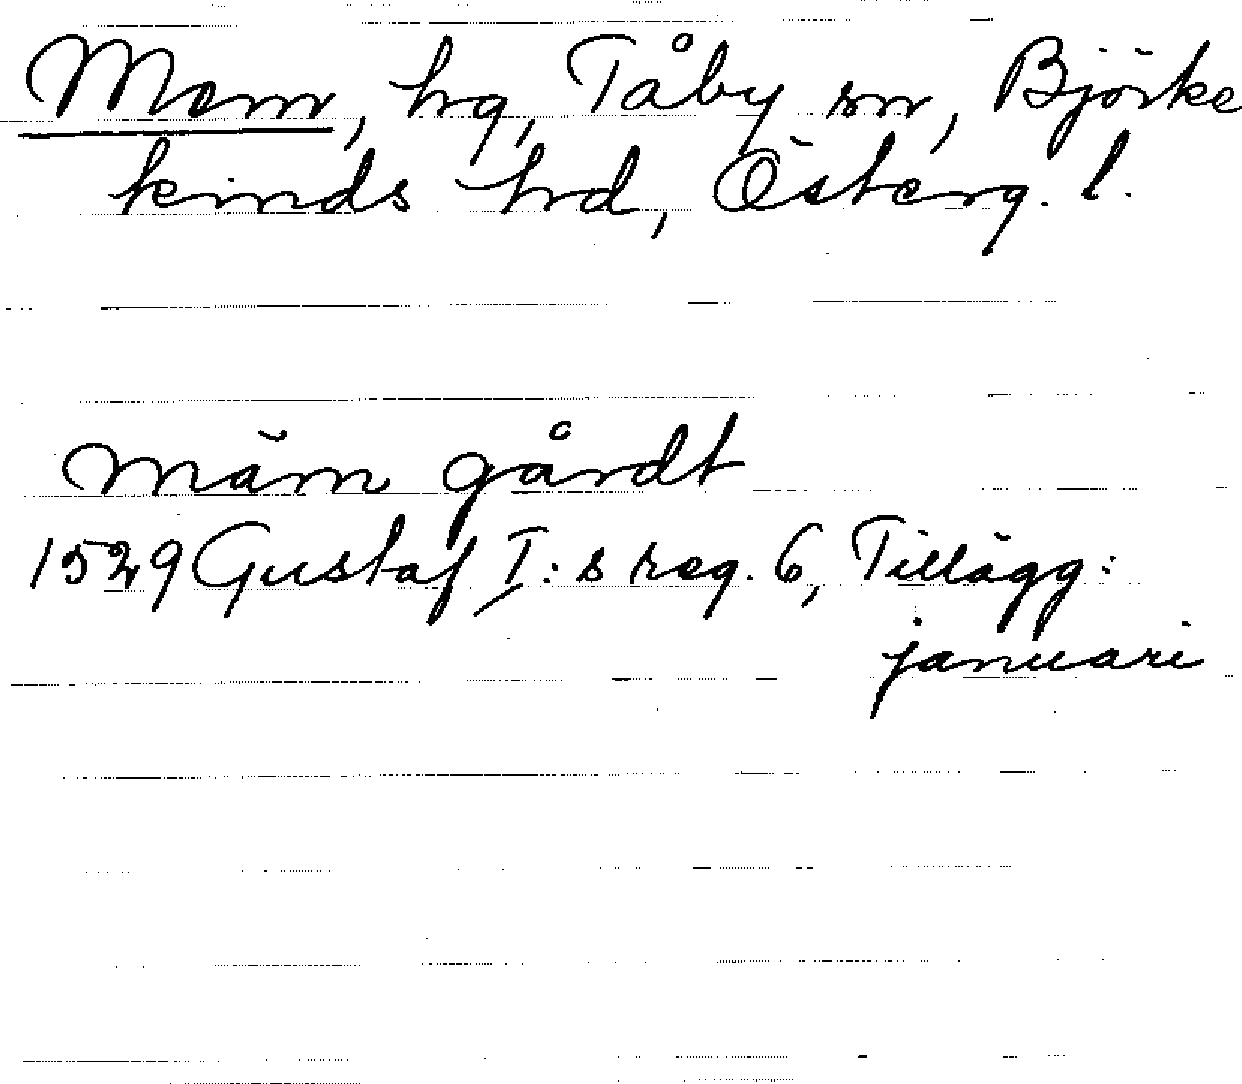 Mem, hg, Tåby sn, Björke
kinds hd, Österg. l.
mäm gårdt
1529 Gustaf I:s reg. 6, Tillägg:
januari